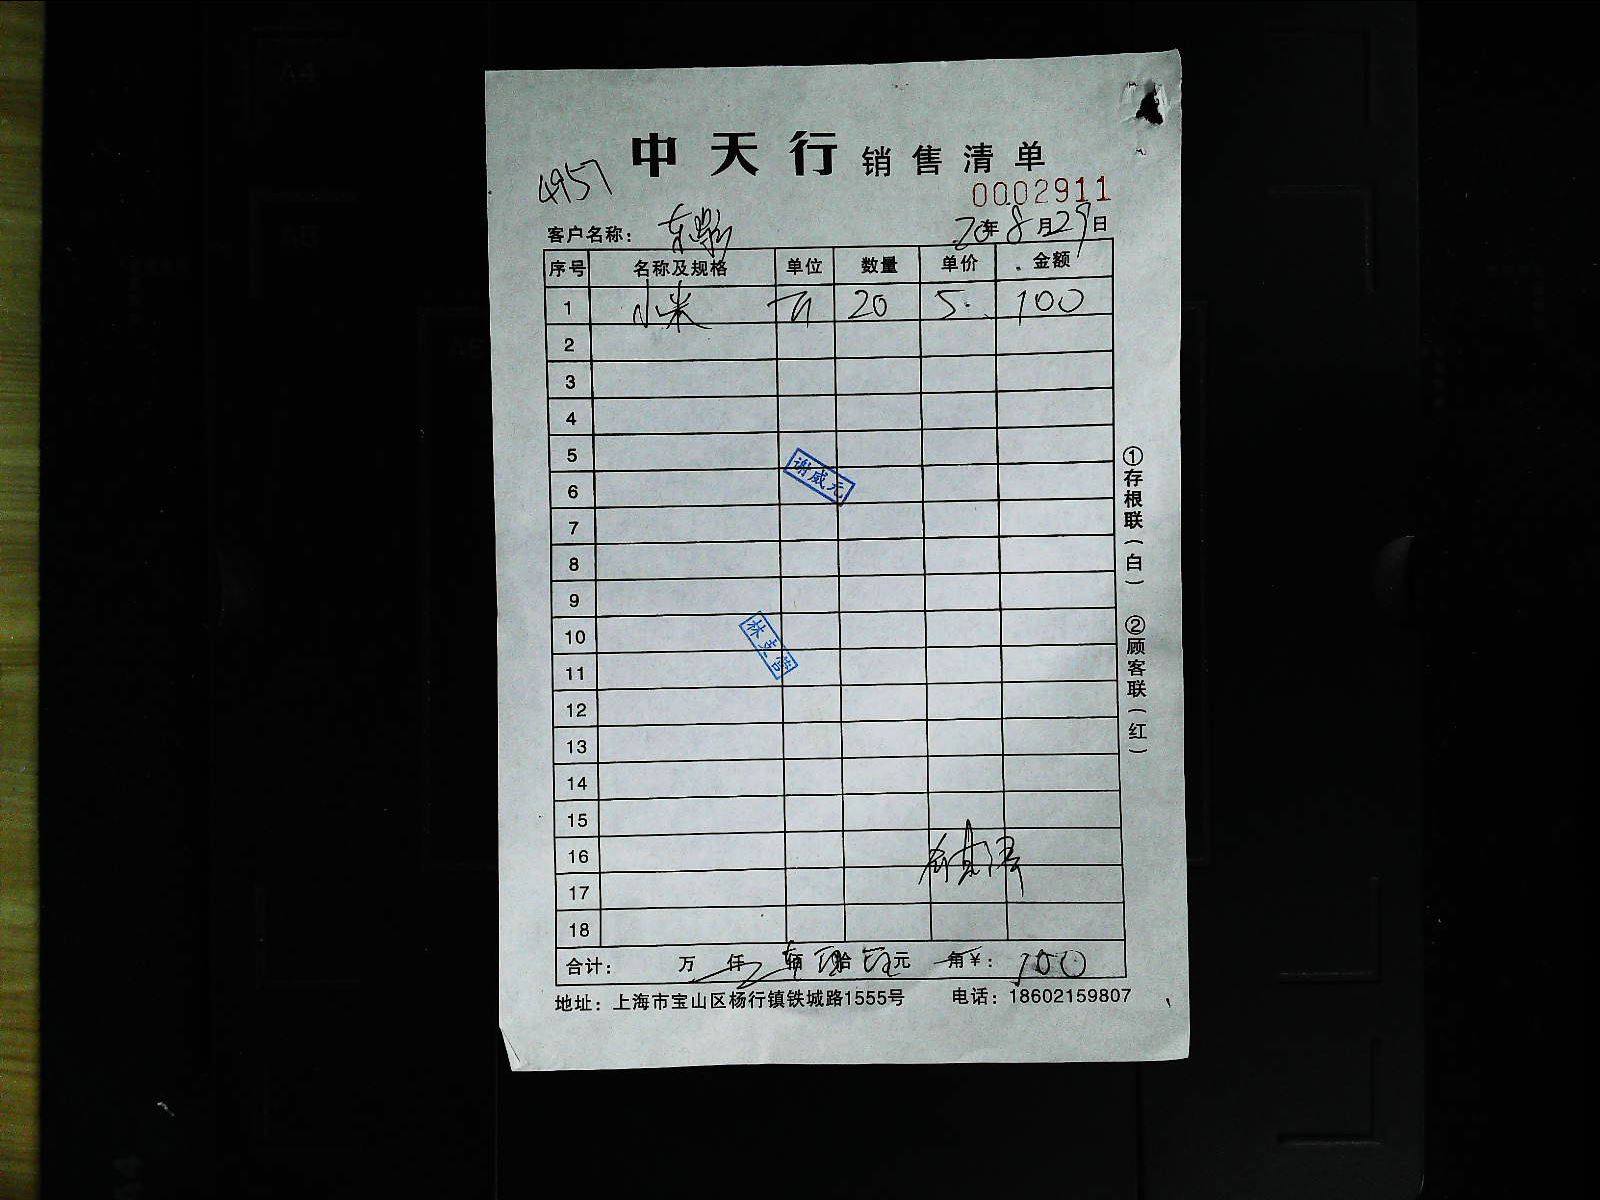 中天行 销售清单
4957
0002911
客户名称： 20年8月29日
序号 名称及规格 单位 数量 单价 金额
1 小米 斤 20 5. 100
2
3
4
5
谢威元
6
7
8
9
10
林支营
11
12
13
14
15
16
17
18
合计： 万 仟 佰 拾 元 角 ¥：100
地址：上海市宝山区杨行镇铁城路1555号 电话：18602159807
①存根联（白） ②顾客联（红）